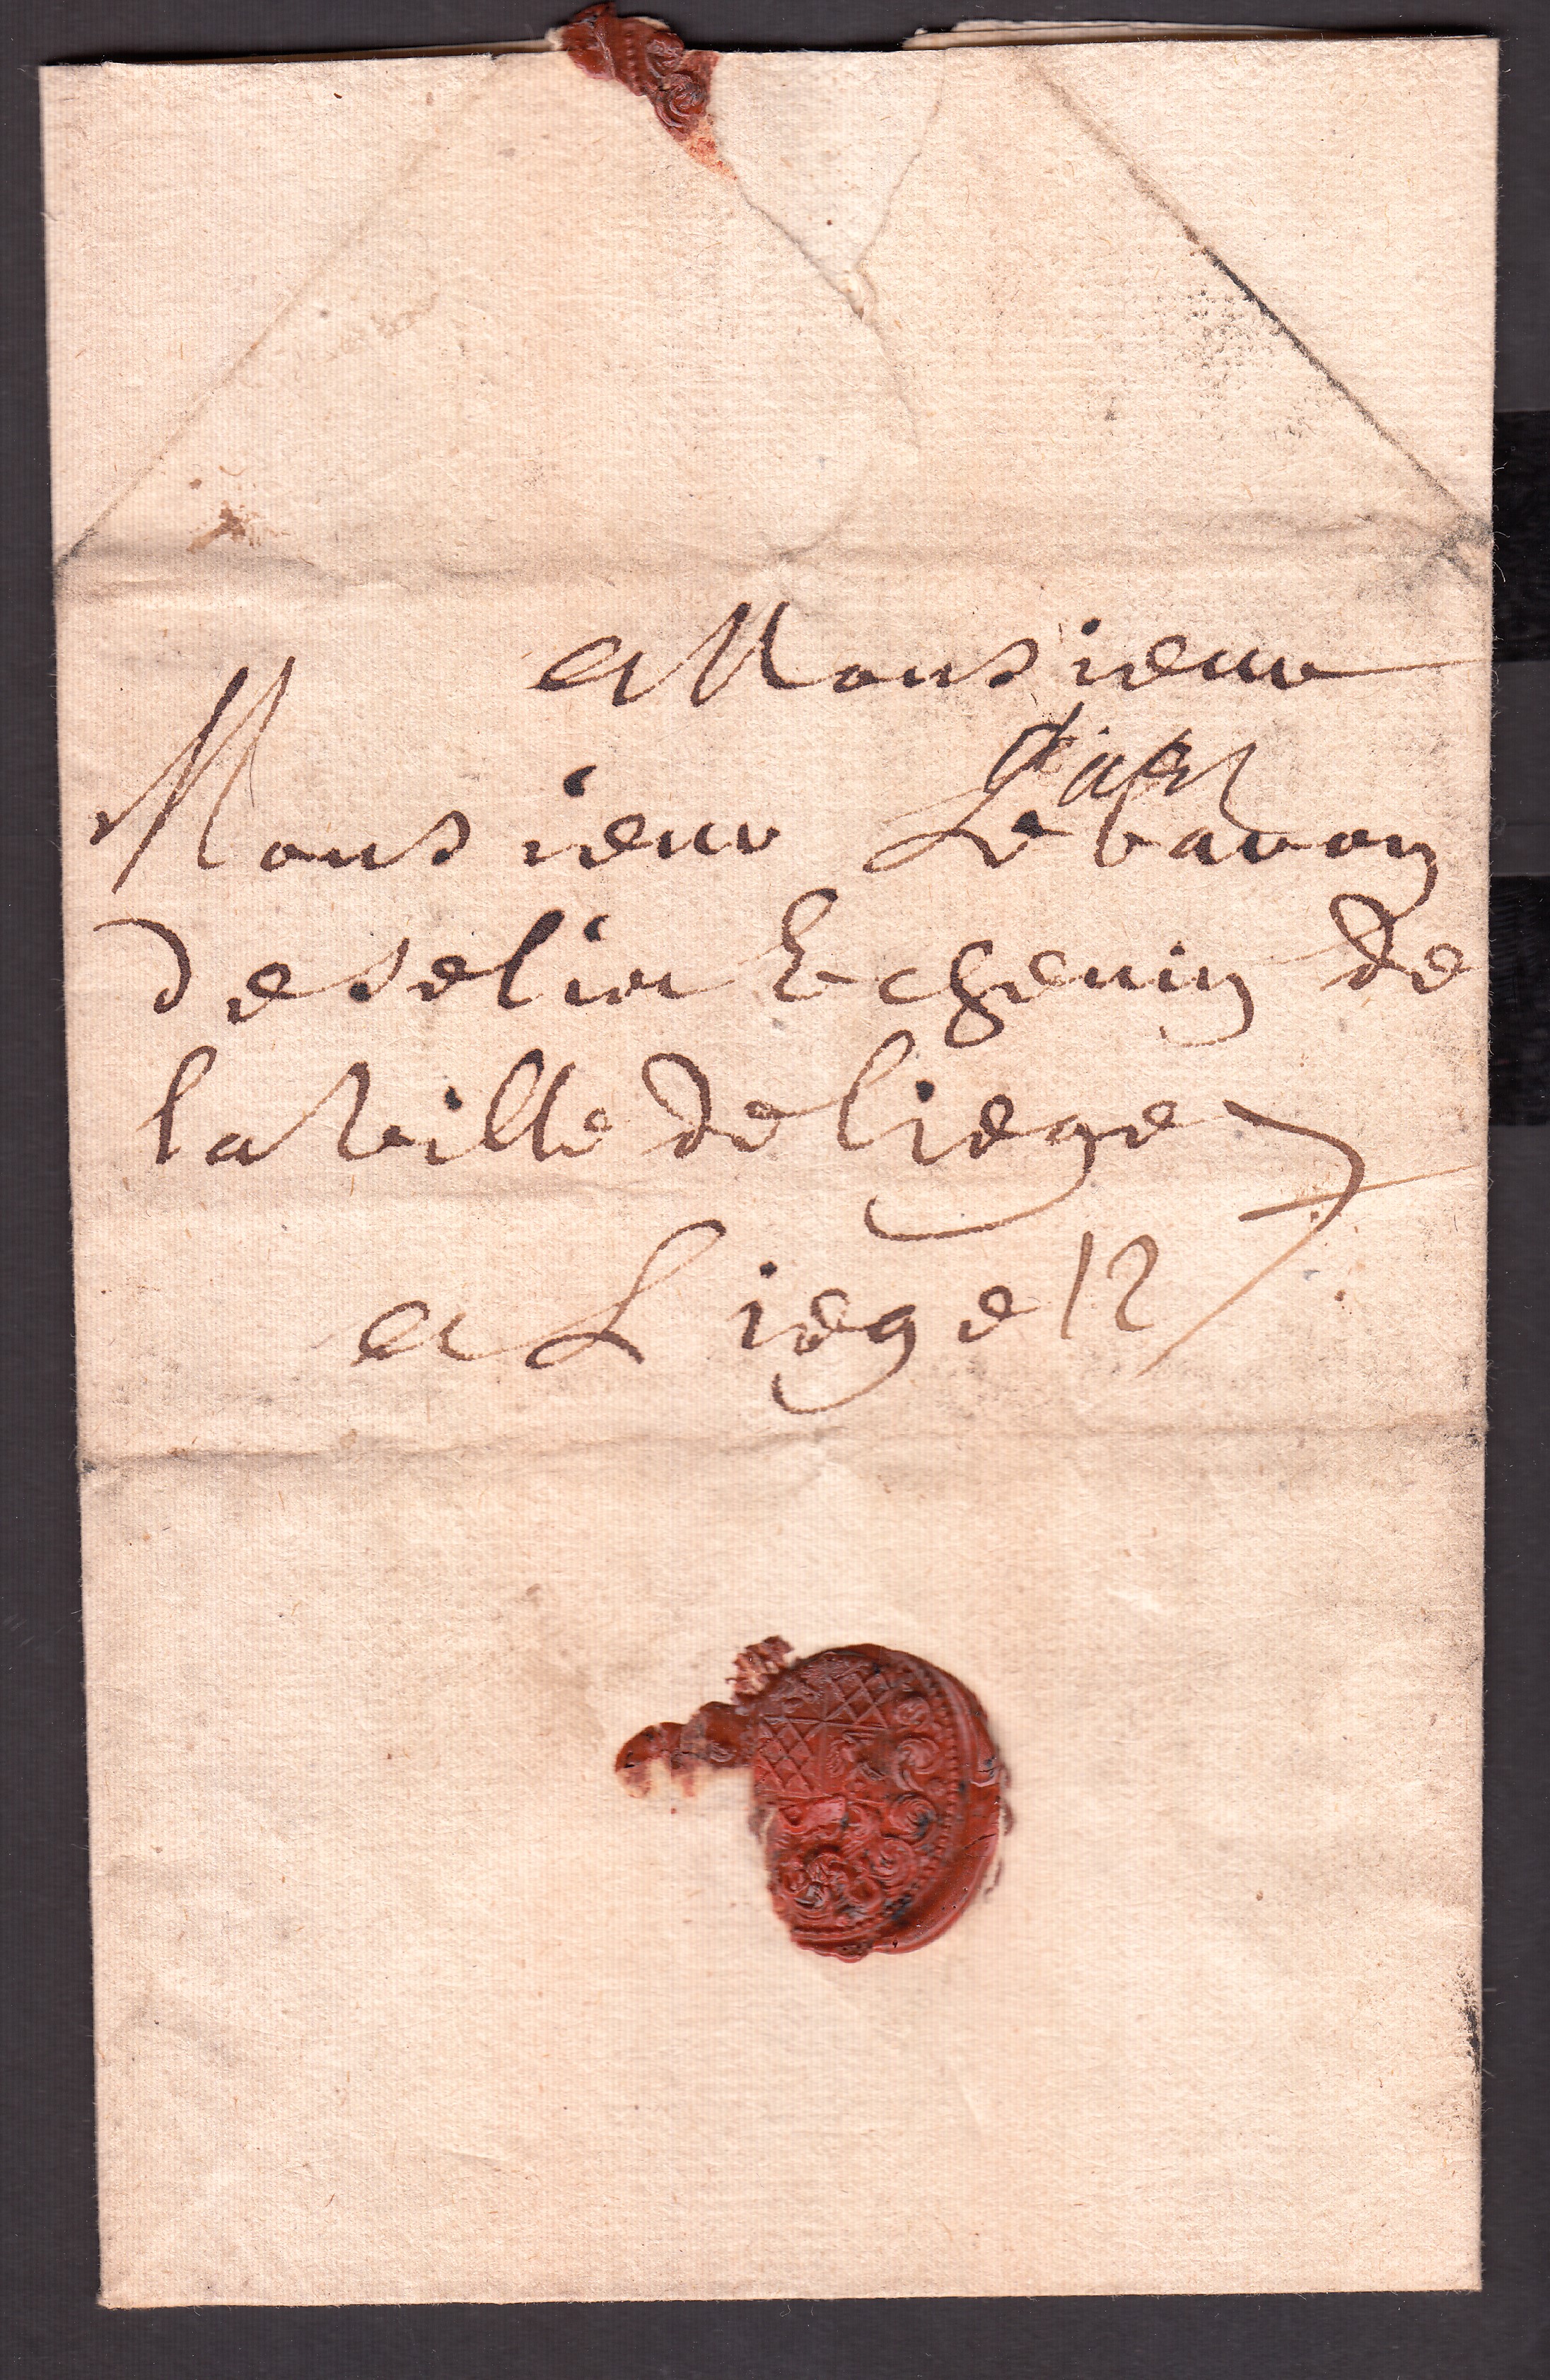 a Monsieur
Monsieur Le baron
de selier Echeuin de
la Ville de liege
a Liege 12